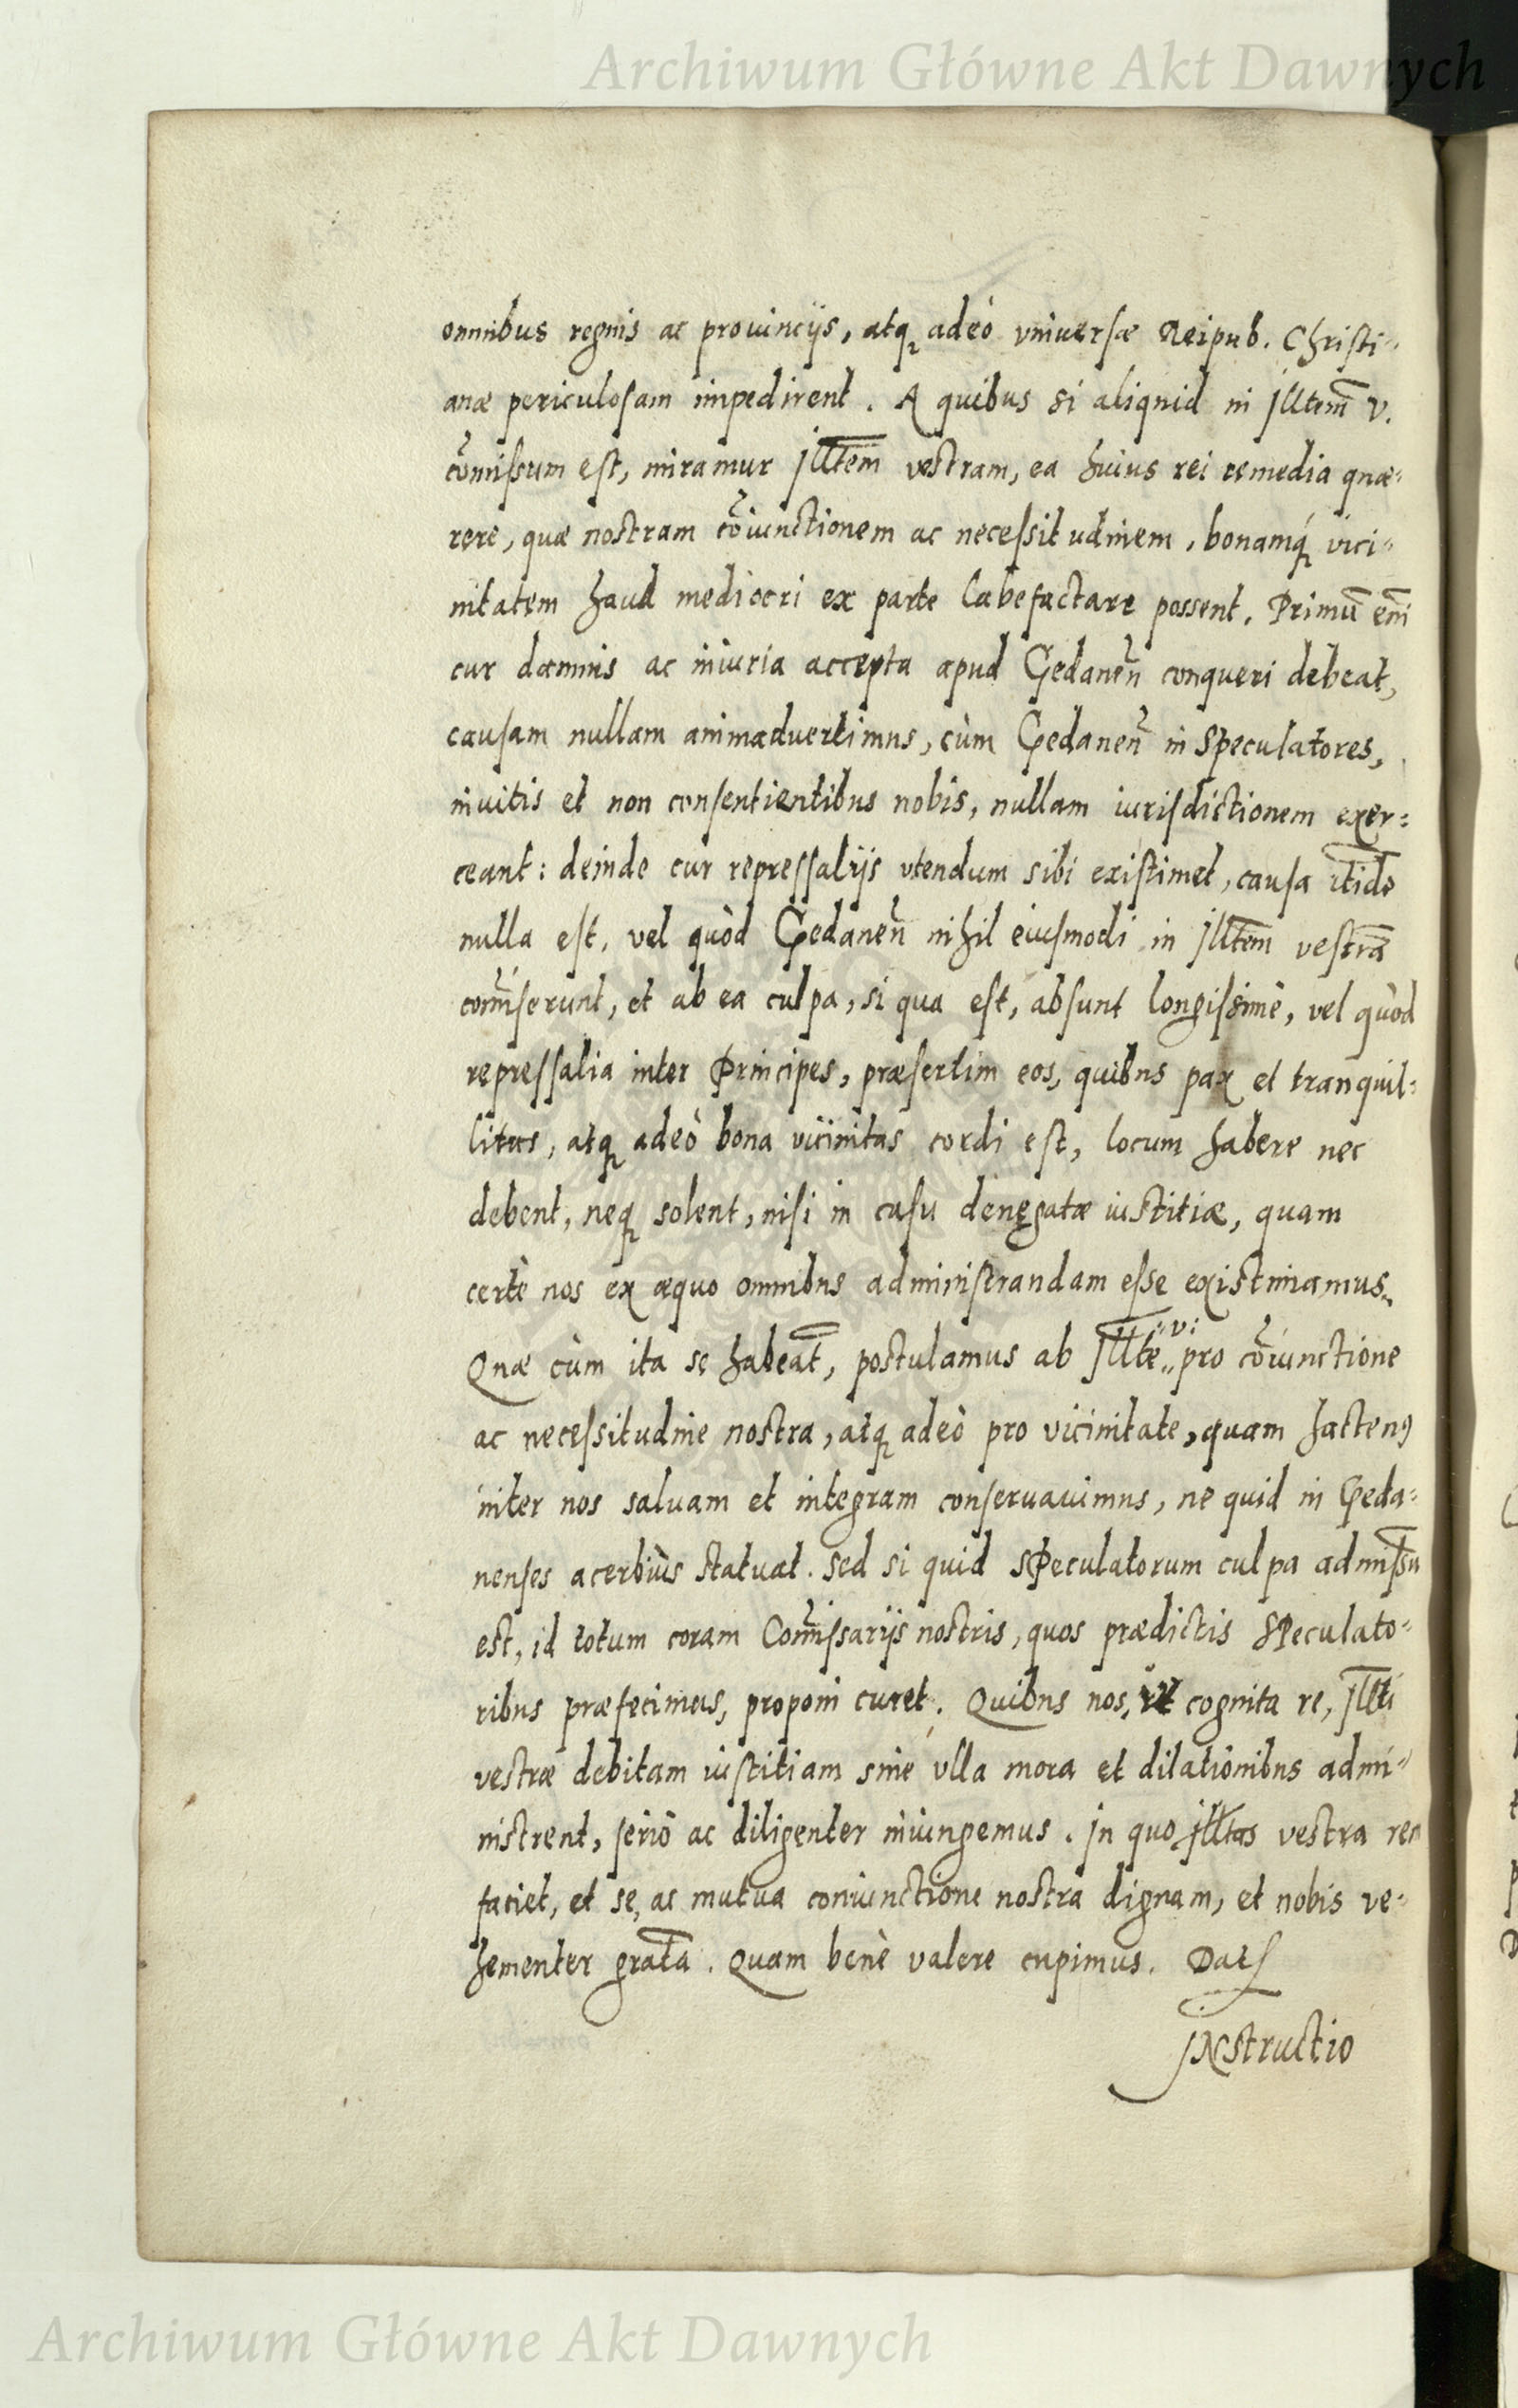 Archiwum Główne Akt Dawnych
omnibus regnis ac prouincijs, atq adeò vniuersæ Reipub. Christi-
anæ periculosam impedirent. A quibus si aliquid in Jlltem̃ V.
com̃issum est, miramur Jlltem̃ vestram, ea huius rei remedia quæ-
rere, quæ nostram cõiunctionem ac necessitudinem, bonamq́ vici-
nitatem haud mediocri ex parte labefactare possent. Primũ em̃
cur damnis ac iniuria accepta apud Gedaneñ conqueri debeat,
causam nullam animaduertimus, cùm Gedaneñ in Speculatores,
inuitis et non consentientibus nobis, nullam iurisdictionem exer-
ceant: deinde cur repressalijs vtendum sibi existimet, causa itidẽ
nulla est, vel quòd Gedaneñ nihil eiusmodi in Jlltem̃ vestrã
com̃iserunt, et ab ea culpa, si qua est, absunt longissimè, vel quòd
repressalia inter Principes, præsertim eos, quibus pax et tranquil-
litas, atq adeò bona vicinitas cordi est, locum habere nec
debent, neq solent, nisi in casu denegatæ iustitiæ, quam
certè nos ex æquo omnibus administrandam esse existimamus.
Quæ cùm ita se habeãt, postulamus ab Jllte V. pro cõiunctione
ac necessitudine nostra, atq adeò pro vicinitate, quam hacten9
inter nos saluam et integram conseruauimus, ne quid in Geda-
nenses acerbiùs statuat. Sed si quid Speculatorum culpa admissũ
est, id totum coram Com̃issarijs nostris, quos prædictis Speculato-
ribus præfecimus, proponi curet. Quibus nos, vt cognita re, Jllti
vestræ debitam iustitiam sine vlla mora et dilationibus admi-
nistrent, seriò ac diligenter iniungemus. Jn quo Jlltas vestra rem
faciet, et se, ac mutua coniunctione nostra dignam, et nobis ve-
hementer gratã. Quam benè valere cupimus. Dat
JNstructio
Archiwum Główne Akt Dawnych